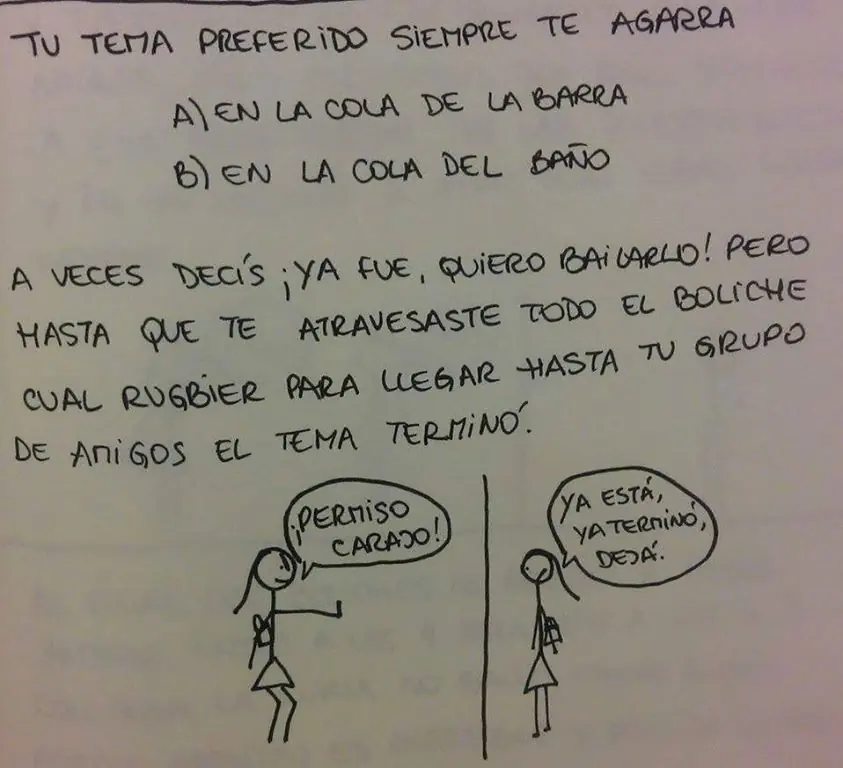 TU TEMA PREFERIDO SIEMPRE TE AGARRA
A) EN LA COLA DE LA BARRA
B) EN LA COLA DEL BAÑO
A VECES DECÍS ¡YA FUE, QUIERO BAILARLO! PERO
HASTA QUE TE ATRAVESASTE TODO EL BOLICHE
CUAL RUGBIER PARA LLEGAR HASTA TU GRUPO
DE AMIGOS EL TEMA TERMINÓ.
¡PERMISO
CARAJO!
YA ESTÁ,
YA TERMINÓ,
DEJÁ.